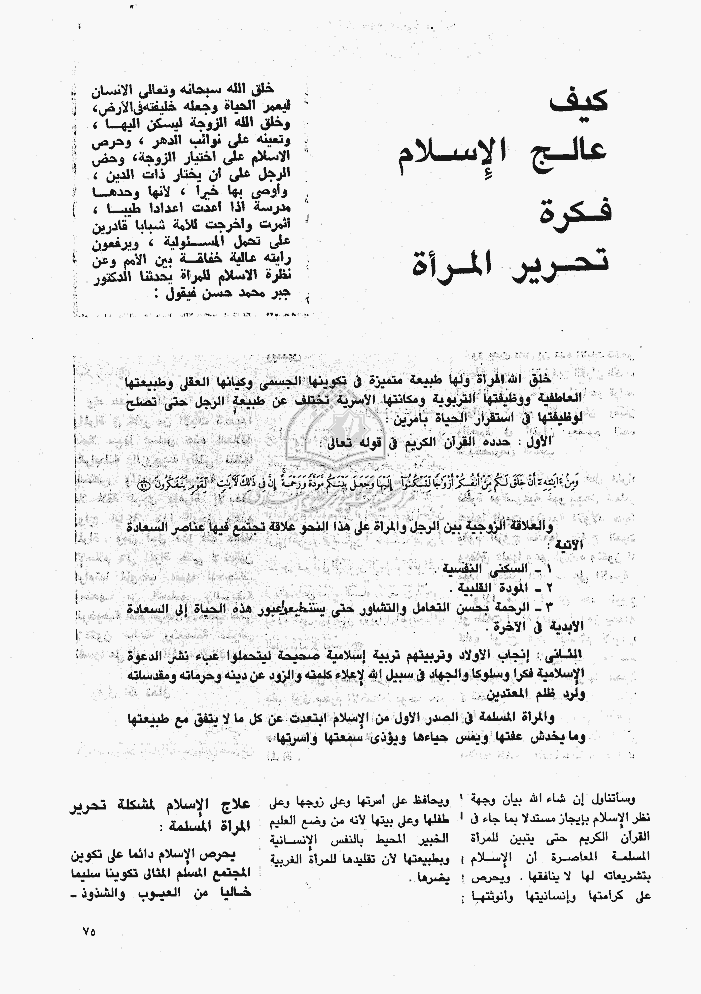 كيف
عالج الإسلام
فكرة
تحرير المرأة
خلق الله سبحانه وتعالى الانسان
ليعمر الحياة وجعله خليفته في الأرض،
وخلق الله الزوجة ليسكن اليها ،
وتعينه على نوائب الدهر ، وحرص
الاسلام على اختيار الزوجة، وحض
الرجل على أن يختار ذات الدين ،
وأوصى بها خيرا ، لأنها وحدها
مدرسة اذا أعدت اعدادا طيبا ،
أثمرت وأخرجت للأمة شبابا قادرين
على تحمل المسئولية ، ويرفعون
رايته عالية خفاقة بين الأمم وعن
نظرة الاسلام للمرأة يحدثنا الدكتور
جبر محمد حسن فيقول :
خلق الله المرأة ولها طبيعة متميزة فى تكوينها الجسمى وكيانها العقلى وطبيعتها
العاطفية ووظيفتها التربوية ومكانتها الأسرية تختلف عن طبيعة الرجل حتى تصلح
لوظيفتها فى استقرار الحياة بأمرين :
الأول : حدده القرآن الكريم فى قوله تعالى :
وَمِنْ ءَايَٰتِهِۦٓ أَنْ خَلَقَ لَكُم مِّنْ أَنفُسِكُمْ أَزْوَٰجًا لِّتَسْكُنُوٓا۟ إِلَيْهَا وَجَعَلَ بَيْنَكُم مَّوَدَّةً وَرَحْمَةً إِنَّ فِى ذَٰلِكَ لَءَايَٰتٍ لِّقَوْمٍ يَتَفَكَّرُونَ ﴿٢١﴾
والعلاقة الزوجية بين الرجل والمرأة على هذا النحو علاقة تجتمع فيها عناصر السعادة
الآتية :
١ ـ السكنى النفسية .
٢ ـ المودة القلبية .
٣ ـ الرحمة بحسن التعامل والتشاور حتى يستطيع عبور هذه الحياة إلى السعادة
الأبدية فى الآخرة .
الثانى : إنجاب الأولاد وتربيتهم تربية إسلامية صحيحة ليتحملوا عبء نشر الدعوة
الإسلامية فكرا وسلوكا والجهاد فى سبيل الله لإعلاء كلمته والزود عن دينه وحرماته ومقدساته
ولرد ظلم المعتدين .
والمرأة المسلمة فى الصدر الأول من الإسلام ابتعدت عن كل ما لا يتفق مع طبيعتها
وما يخدش عفتها ويمس حياءها ويؤذى سمعتها وأسرتها .
وسأتناول إن شاء الله بيان وجهة
نظر الإسلام بإيجاز مستدلا بما جاء فى
القرآن الكريم حتى يتبين للمرأة
المسلمة المعاصرة أن الإسلام
بتشريعاته لها لا ينافقها . ويحرص
على كرامتها وإنسانيتها وأنوثتها
ويحافظ على أسرتها وعلى زوجها وعلى
طفلها وعلى بيتها لأنه من وضع العليم
الخبير المحيط بالنفس الإنسانية
وبطبيعتها لأن تقليدها للمرأة الغربية
يضرها .
علاج الإسلام لمشكلة تحرير
المرأة المسلمة :
يحرص الإسلام دائما على تكوين
المجتمع المسلم المثالى تكوينا سليما
خاليا من العيوب والشذوذ ـ
٧٥